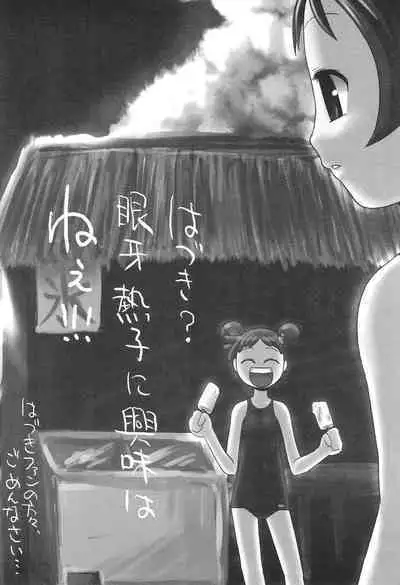 はづき?
眼牙熱子に興味は
ねぇ!!!
氷
はづきファンの方々、
ごめんなさい…